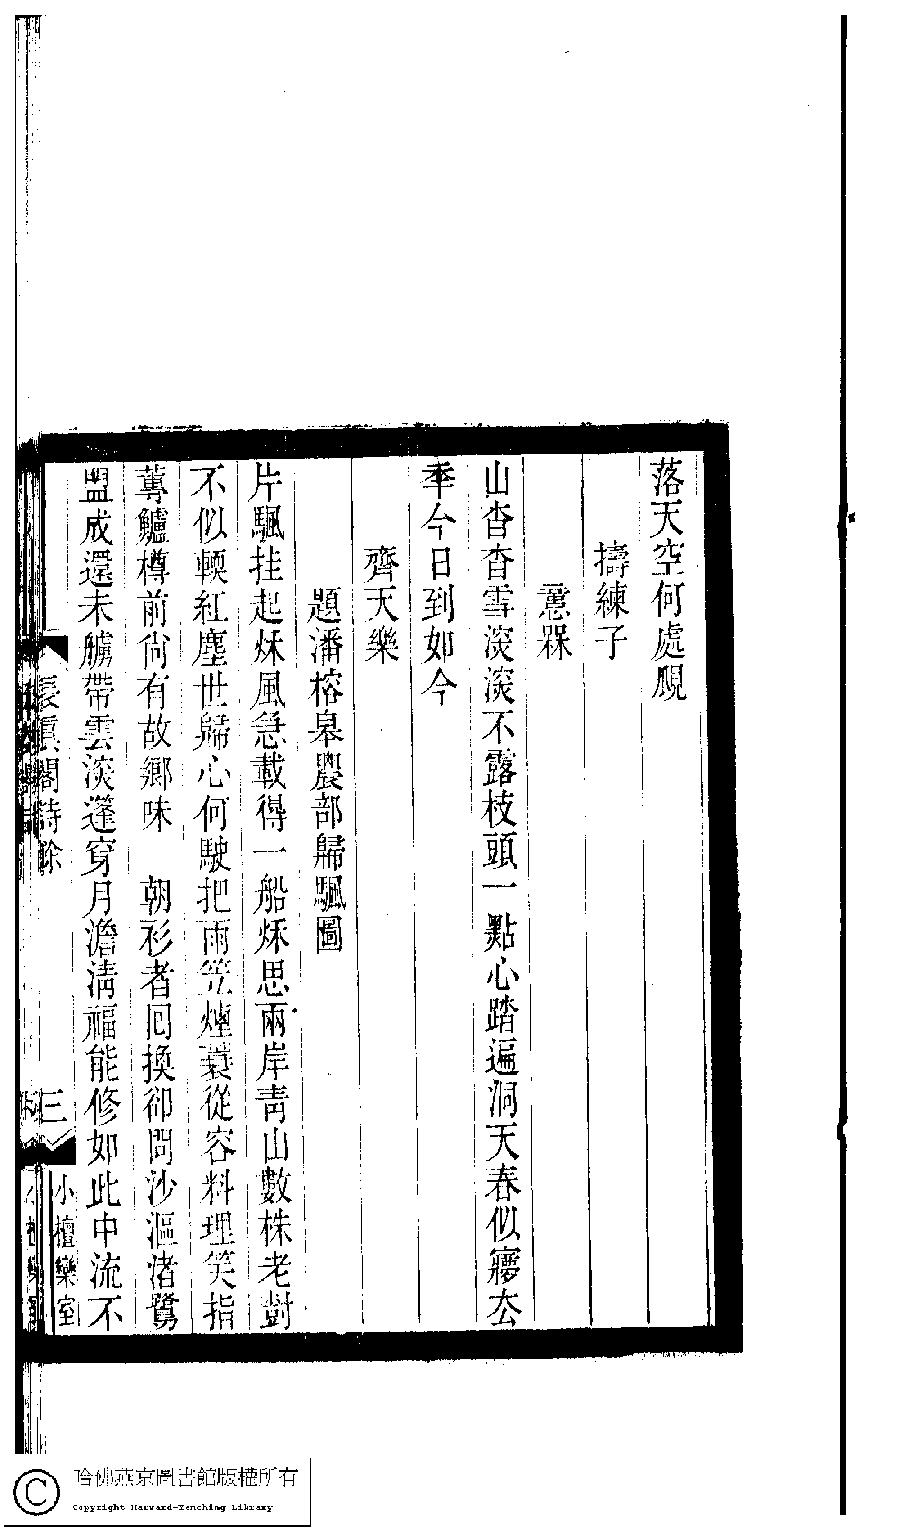 落天空何處覓
擣練子
意槑
山杳杳雪淡淡不露枝頭一點心踏遍洞天春似寱厺
年今日到如今
齊天樂
題潘榕皋農部歸颿圖
片颿挂起秌風急載得一船秌思兩岸青山數株老樹
不似輭紅塵世歸心何駛把雨笠煙蓑從容料理笑指
蓴鱸樽前尙有故鄉味　朝衫者回換卻問沙漚渚鷺
盟成還未艣帶雲淡蓬穿月澹淸福能修如此中流不
長眞閣詩餘
三
小檀欒室
哈佛燕京圖書館版權所有
Copyright Harvard-Yenching Library